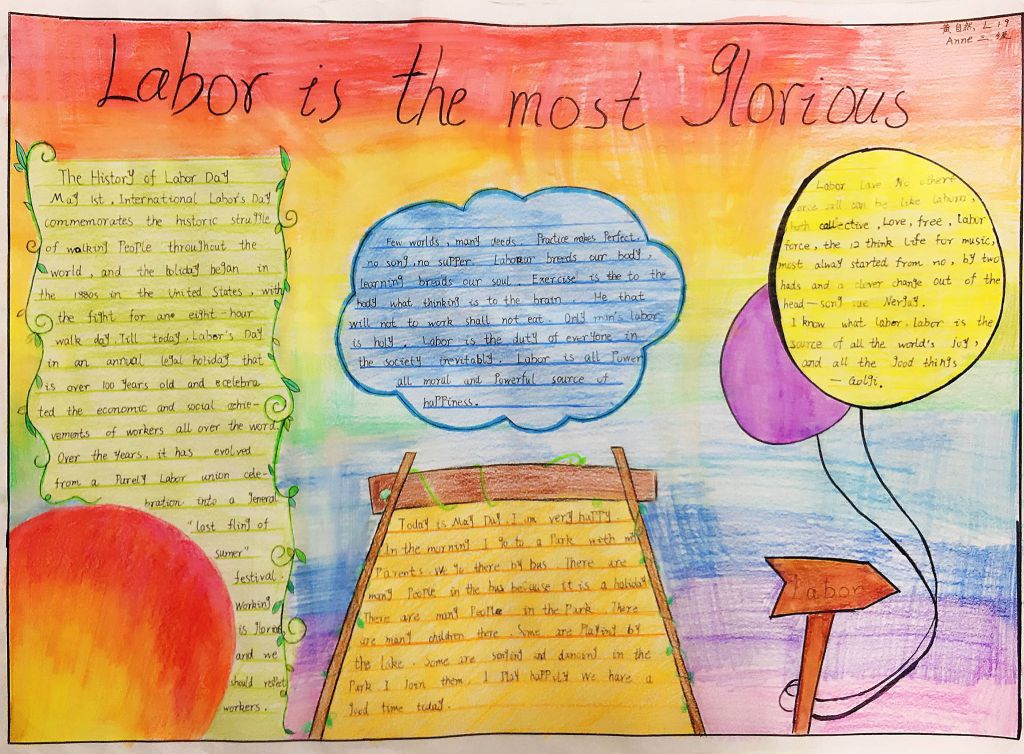 黄自然, L 19
Anne 三级
Labor is the most glorious
The History of Labor Day
May 1st, International Labor's Day
commemorates the historic struggle
of walking People throughout the
world, and the holiday began in
the 1880s in the United States, with
the fight for an eight-hour
walk day. Till today, Labor's Day
in an annual legal holiday that
is over 100 years old and ecelebra
ted the economic and social achie-
vements of workers all over the word.
Over the years, it has evolved
from a Purely Labor union cele-
bration into a general
"last fling of
sumer"
festival.
Working
is glorious
and we
should reflect
workers.
Few worlds, many deeds. Practice makes Perfect.
no song, no supper. Labour breeds our body,
learning breads our soul. Exercise is the to the
body what thinking is to the brain. He that
will not to work shall not eat. Only man's labor
is holy. Labor is the duty of everyone in
the society inevitably. Labor is all Power
all moral and Powerful source of
happiness.
Labor Love
force all can be like Laborn,
both collective, Love, free, labor
force, the 12 think life for music,
most alway started from no, by two
hads and a clever change out of the
head — song
I know what labor, labor is the
source of all the world's joy,
and all the good things
— Golgi.
Today is May Day. I am very happy.
In the morning I go to a Park with my
Parents. We go there by bus. There are
many People in the bus because it is a holiday
There are many People in the Park. There
are many children there. Some are Playing by
the lake. Some are singing and dancing in the
Park I Join them. I Play happily We have a
good time today.
Labor